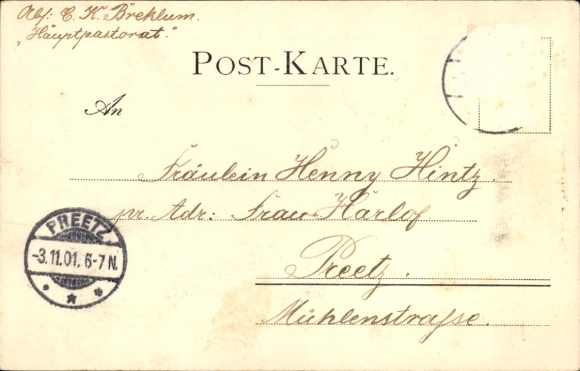 Abs: C. K. Breklum.
"Hauptpastorat."
POST-KARTE.
An
Fräulein Henny Hintz.
pr. Adr: Frau Harlof
Preetz.
Mühlenstrasse.
PREETZ
-3.11.01. 6-7 N.